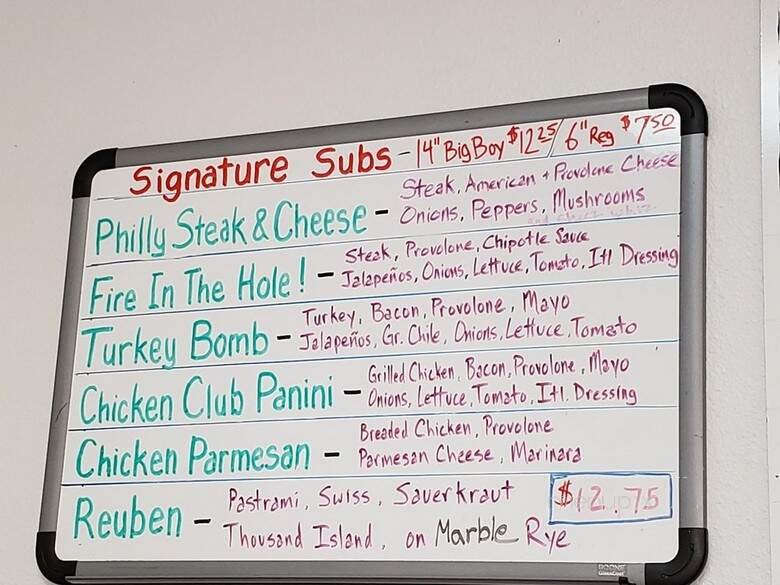 Signature Subs - 14" Big Boy $12.25 / 6" Reg $7.50
Philly Steak & Cheese - Steak, American + Provolone Cheese
Onions, Peppers, Mushrooms
Fire In The Hole! - Steak, Provolone, Chipotle Sauce
Jalapeños, Onions, Lettuce, Tomato, Itl Dressing
Turkey Bomb - Turkey, Bacon, Provolone, Mayo
Jalapeños, Gr. Chile, Onions, Lettuce, Tomato
Chicken Club Panini - Grilled Chicken, Bacon, Provolone, Mayo
Onions, Lettuce, Tomato, Itl. Dressing
Chicken Parmesan - Breaded Chicken, Provolone
Parmesan Cheese, Marinara
Reuben - Pastrami, Swiss, Sauerkraut
Thousand Island, on Marble Rye
$12.75